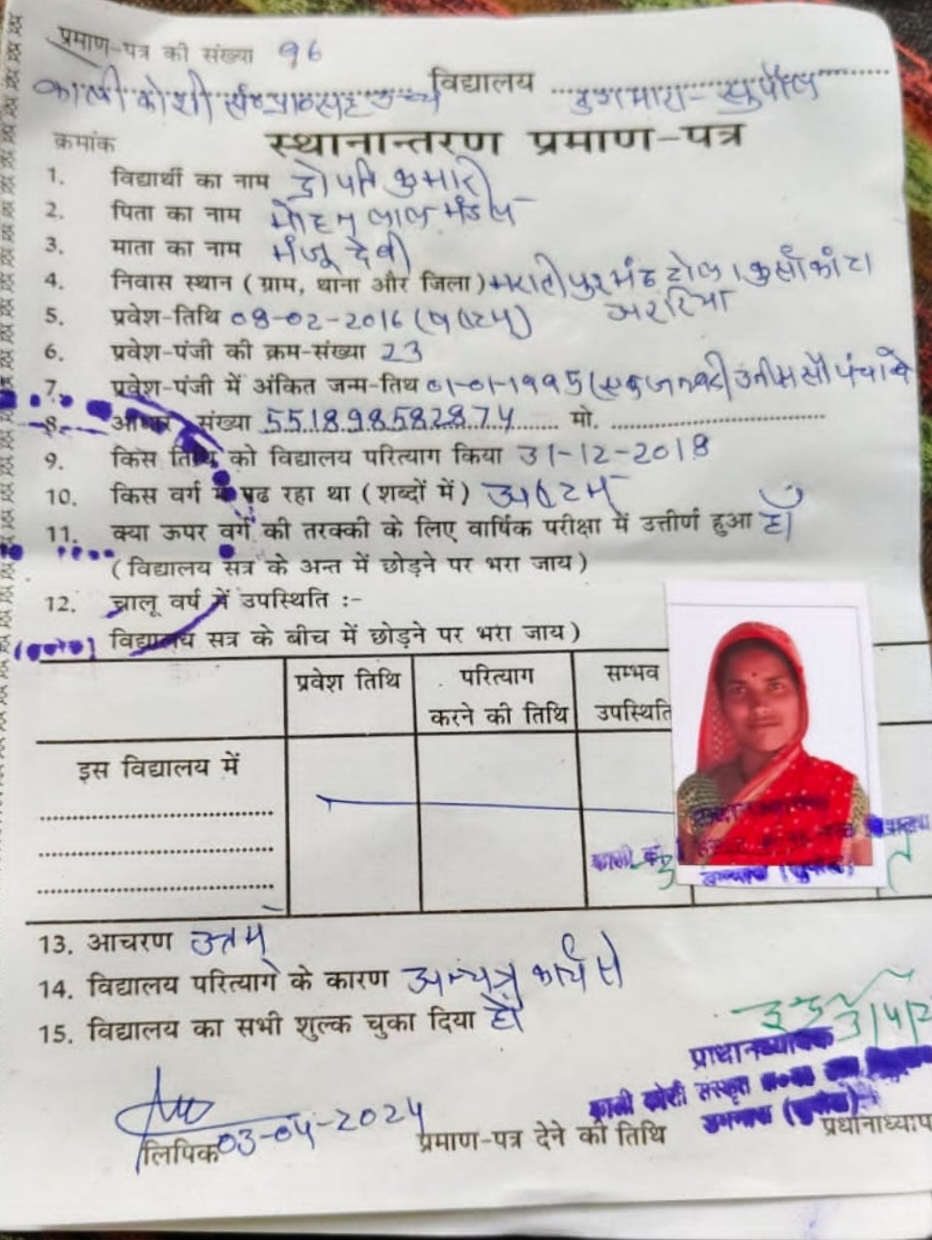 प्रमाण-पत्र की संख्या 96
काली कोशी विद्यालय डगमारा- सुपौल
क्रमांक स्थानान्तरण प्रमाण-पत्र
1. विद्यार्थी का नाम द्रोपति कुमारी
2. पिता का नाम मोहन लाल मंडल
3. माता का नाम मंजू देवी
4. निवास स्थान (ग्राम, थाना और जिला) टोला। कुर्साकांटा
अररिया
5. प्रवेश-तिथि 08-02-2016
6. प्रवेश-पंजी की क्रम-संख्या 23
7. प्रवेश-पंजी में अंकित जन्म-तिथ 01-01-1995 (एक जनवरी) उनीस सौ पंचानवे
8. आधार संख्या 551898582874 मो.
9. किस तिथि को विद्यालय परित्याग किया 31-12-2018
10. किस वर्ग में पढ रहा था (शब्दों में) अष्टम्
11. क्या ऊपर वर्ग की तरक्की के लिए वार्षिक परीक्षा में उत्तीर्ण हुआ हाँ
(विद्यालय सत्र के अन्त में छोड़ने पर भरा जाय)
12. चालू वर्ष में उपस्थिति :-
विद्यालय सत्र के बीच में छोड़ने पर भरा जाय)
प्रवेश तिथि परित्याग सम्भव
करने की तिथि उपस्थिति
इस विद्यालय में
13. आचरण उत्तम्
14. विद्यालय परित्याग के कारण अन्यत्र कार्य से
15. विद्यालय का सभी शुल्क चुका दिया हाँ
प्राधानध्यापक
काली कोशी संस्कृत
डगमारा (सुपौल)
लिपिक 03-04-2024 प्रमाण-पत्र देने की तिथि प्रधानाध्याप